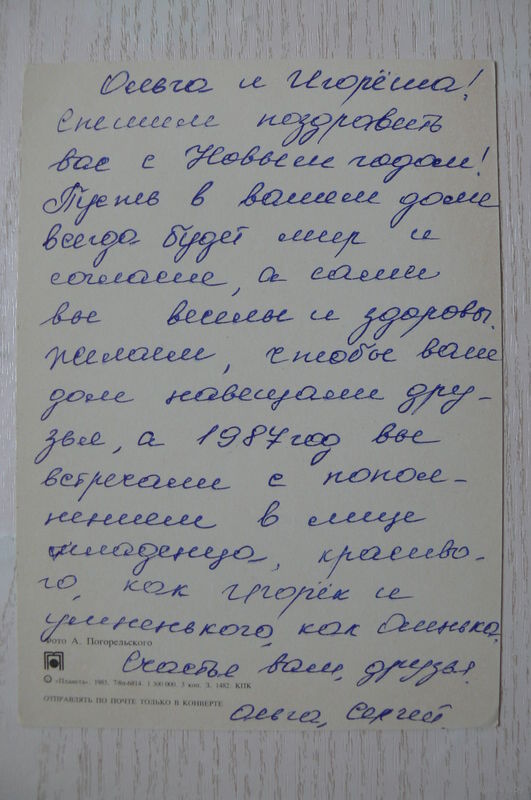 Ольга и Игорёша!
Спешим поздравить
вас с Новым годом!
Пусть в вашем доме
всегда будет мир и
согласие, а сами
вы веселы и здоровы.
Желаем, чтобы ваш
дом навещали дру-
зья, а 1987 год вы
встречали с попол-
нением в лице
младенца, красиво-
го, как Игорёк и
умненького, как Олинька.
Фото А. Погорельского
Счастья вам, друзья.
© «Планета». 1985. 7/8п-6814. 1 300 000. 3 коп. З. 1482. КПК
ОТПРАВЛЯТЬ ПО ПОЧТЕ ТОЛЬКО В КОНВЕРТЕ
Ольга, Сергей.